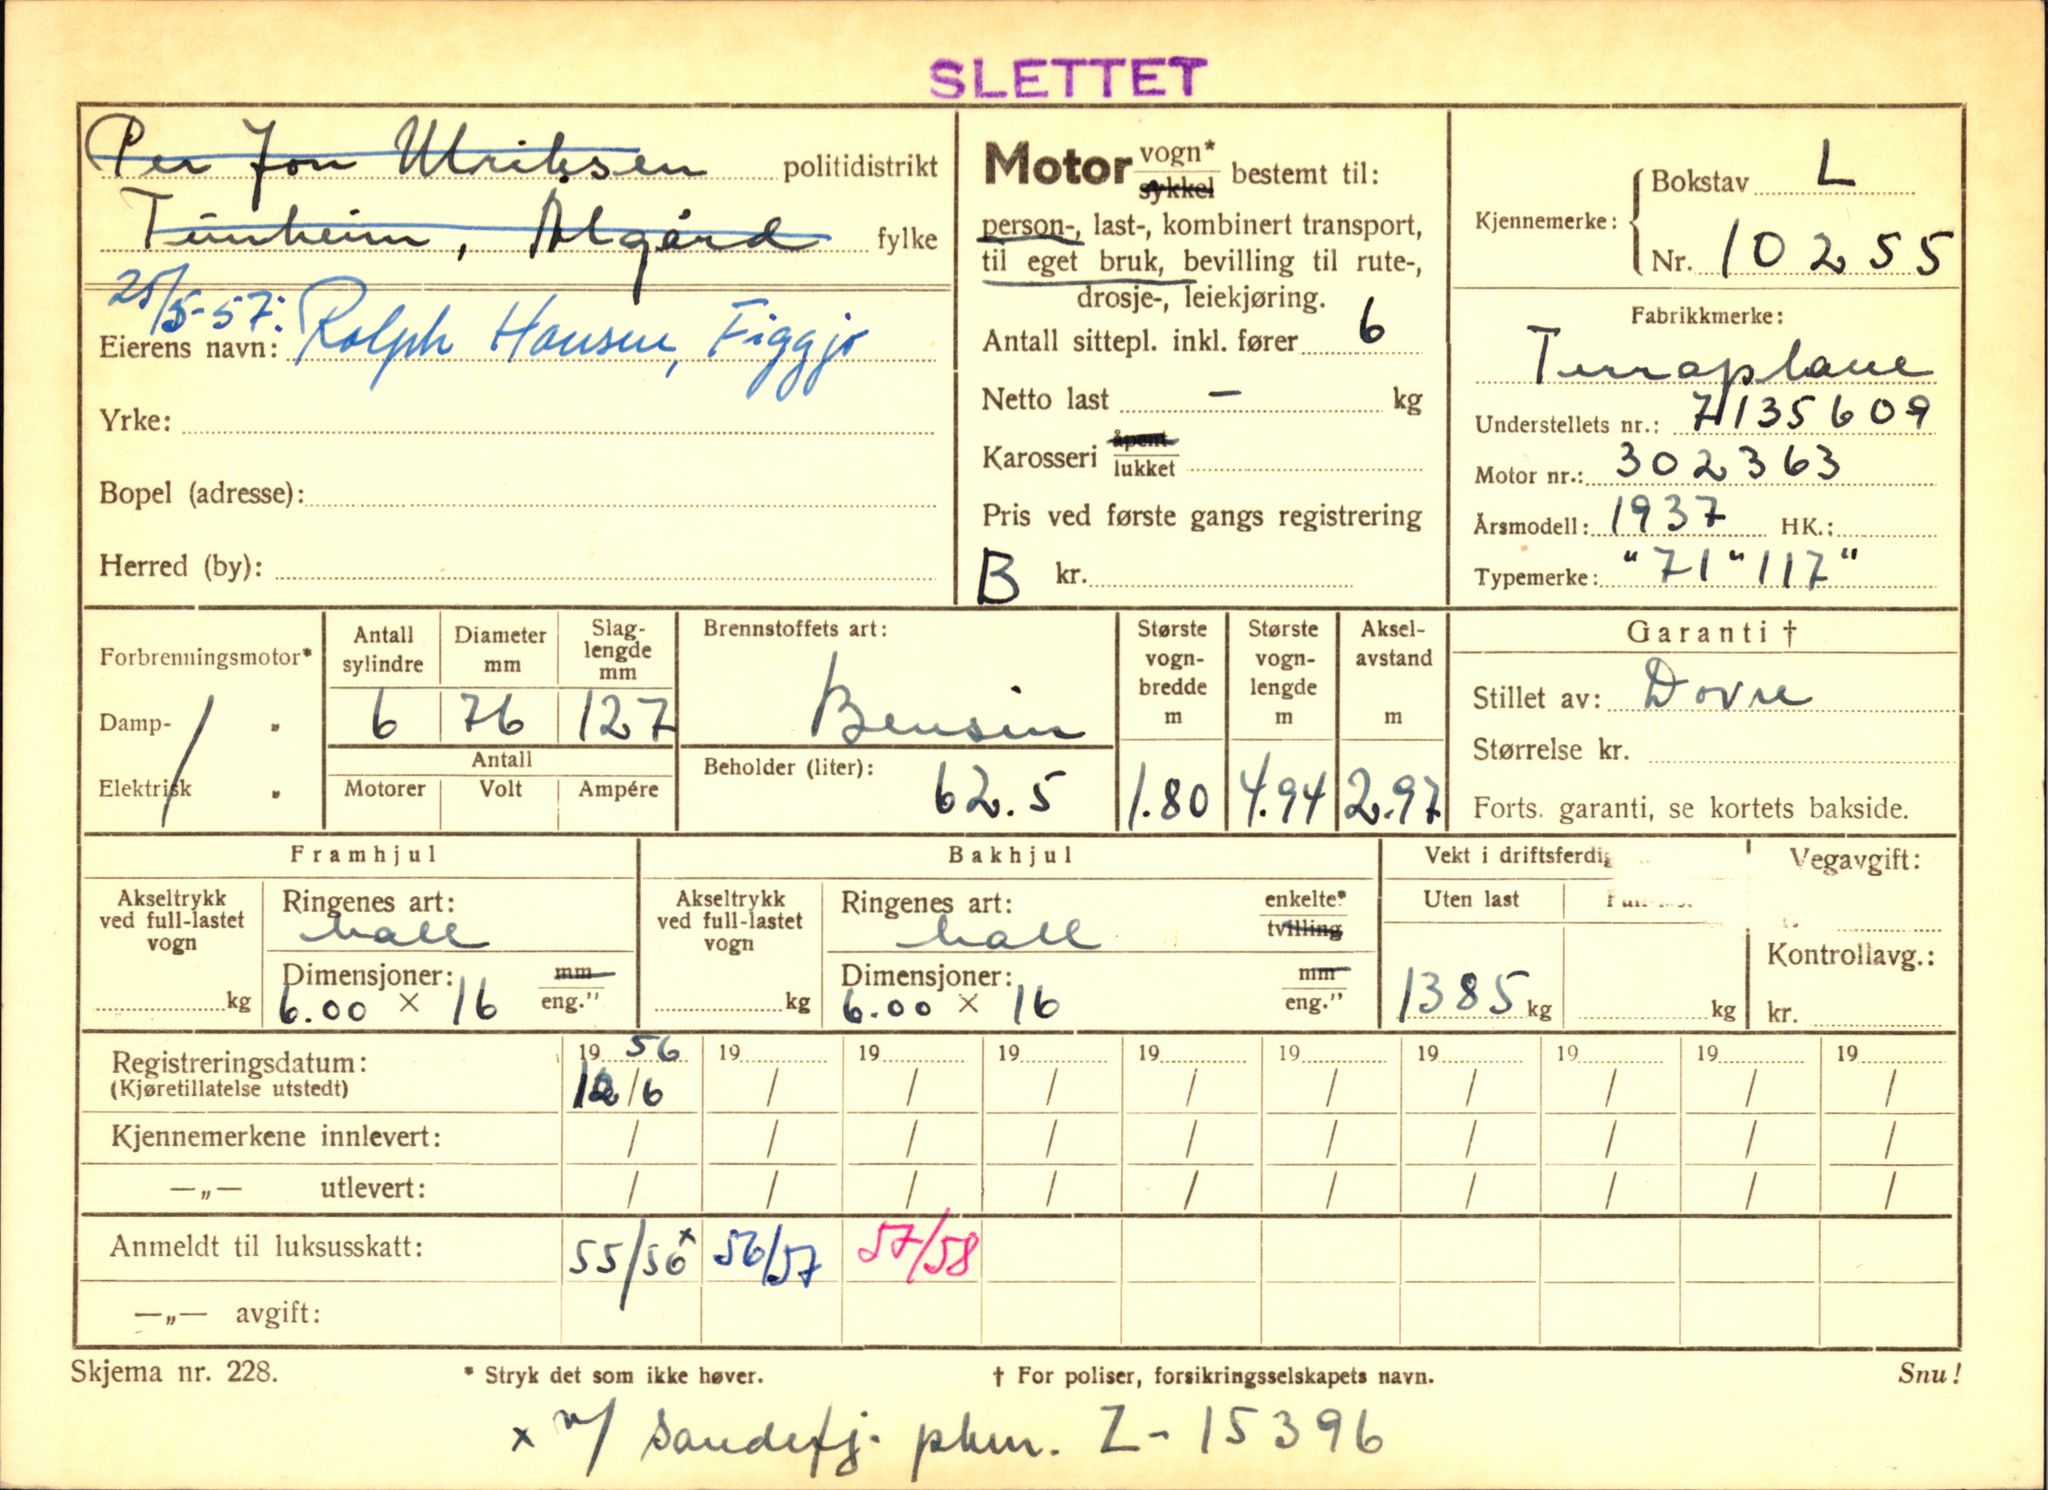 SLETTET
Per Jon Ulriksen politidistrikt
Tunheim, Ålgård fylke
25/5-57:
Eierens navn: Rolph Hansen, Figgjo
Yrke:
Bopel (adresse):
Herred (by):
Motor vogn* sykkel bestemt til:
person-, last-, kombinert transport,
til eget bruk, bevilling til rute-,
drosje-, leiekjøring.
Antall sittepl. inkl. fører 6
Netto last – kg
Karosseri åpent lukket
Pris ved første gangs registrering
B kr.
Kjennemerke: Bokstav L
Nr. 10255
Fabrikkmerke:
Terraplane
Understellets nr.: 7135609
Motor nr.: 302363
Årsmodell: 1937 HK.:
Typemerke: "71"117"
Forbrenningsmotor*
Damp- „
Elektrisk „
Antall sylindre Diameter mm Slag-lengde mm
6 76 127
Antall
Motorer Volt Ampére
Brennstoffets art:
Bensin
Beholder (liter): 62.5
Største vogn-bredde m Største vogn-lengde m Aksel-avstand m
1.80 4.94 2.97
Garanti †
Stillet av: Dovre
Størrelse kr.
Forts. garanti, se kortets bakside.
Framhjul
Akseltrykk ved full-lastet vogn
kg
Ringenes art:
hall
Dimensjoner: mm
6.00 × 16 eng."
Bakhjul
Akseltrykk ved full-lastet vogn
kg
Ringenes art: enkelte*
hall tvilling
Dimensjoner: mm
6.00 × 16 eng."
Vekt i driftsferdig
Uten last
1385 kg
kg
Vegavgift:
Kontrollavg.:
kr.
Registreringsdatum: 19 56 19 19 19 19 19 19 19 19 19
(Kjøretillatelse utstedt) 12/6 / / / / / / / / /
Kjennemerkene innlevert: / / / / / / / / / /
—„— utlevert: / / / / / / / / / /
Anmeldt til luksusskatt: 55/56 x 56/57 57/58
—„— avgift:
Skjema nr. 228. * Stryk det som ikke høver. † For poliser, forsikringsselskapets navn. Snu!
x v/ Sandefj. pkm. Z-15396